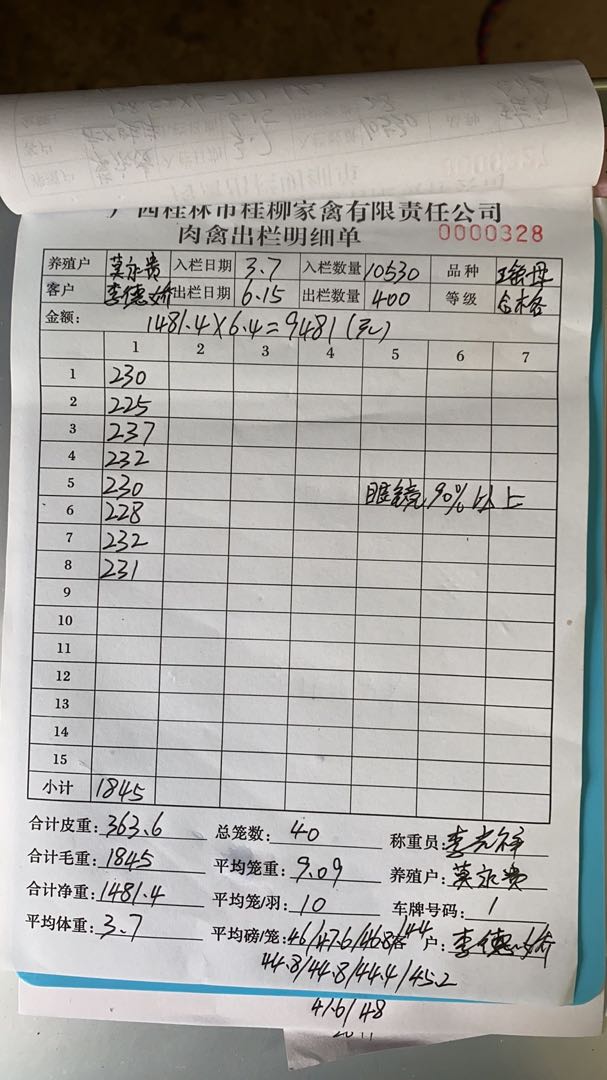 广西桂林市桂柳家禽有限责任公司
肉禽出栏明细单 0000328
养殖户 莫永贵 入栏日期 3.7 入栏数量 10530 品种
客户 李德娇 出栏日期 6.15 出栏数量 400 等级 合格
金额: 1481.4×6.4=9481(元)
1 2 3 4 5 6 7
1 230
2 225
3 237
4 232
5 230 眼镜90%以上
6 228
7 232
8 231
9
10
11
12
13
14
15
小计 1845
合计皮重: 363.6 总笼数: 40 称重员: 李光祥
合计毛重: 1845 平均笼重: 9.09 养殖户: 莫永贵
合计净重: 1481.4 平均笼/羽: 10 车牌号码: 1
平均体重: 3.7 平均磅/笼: 46/47.6/46.8/44 客户: 李德娇
44.8/44.8/44.4/45.2
41.6/48